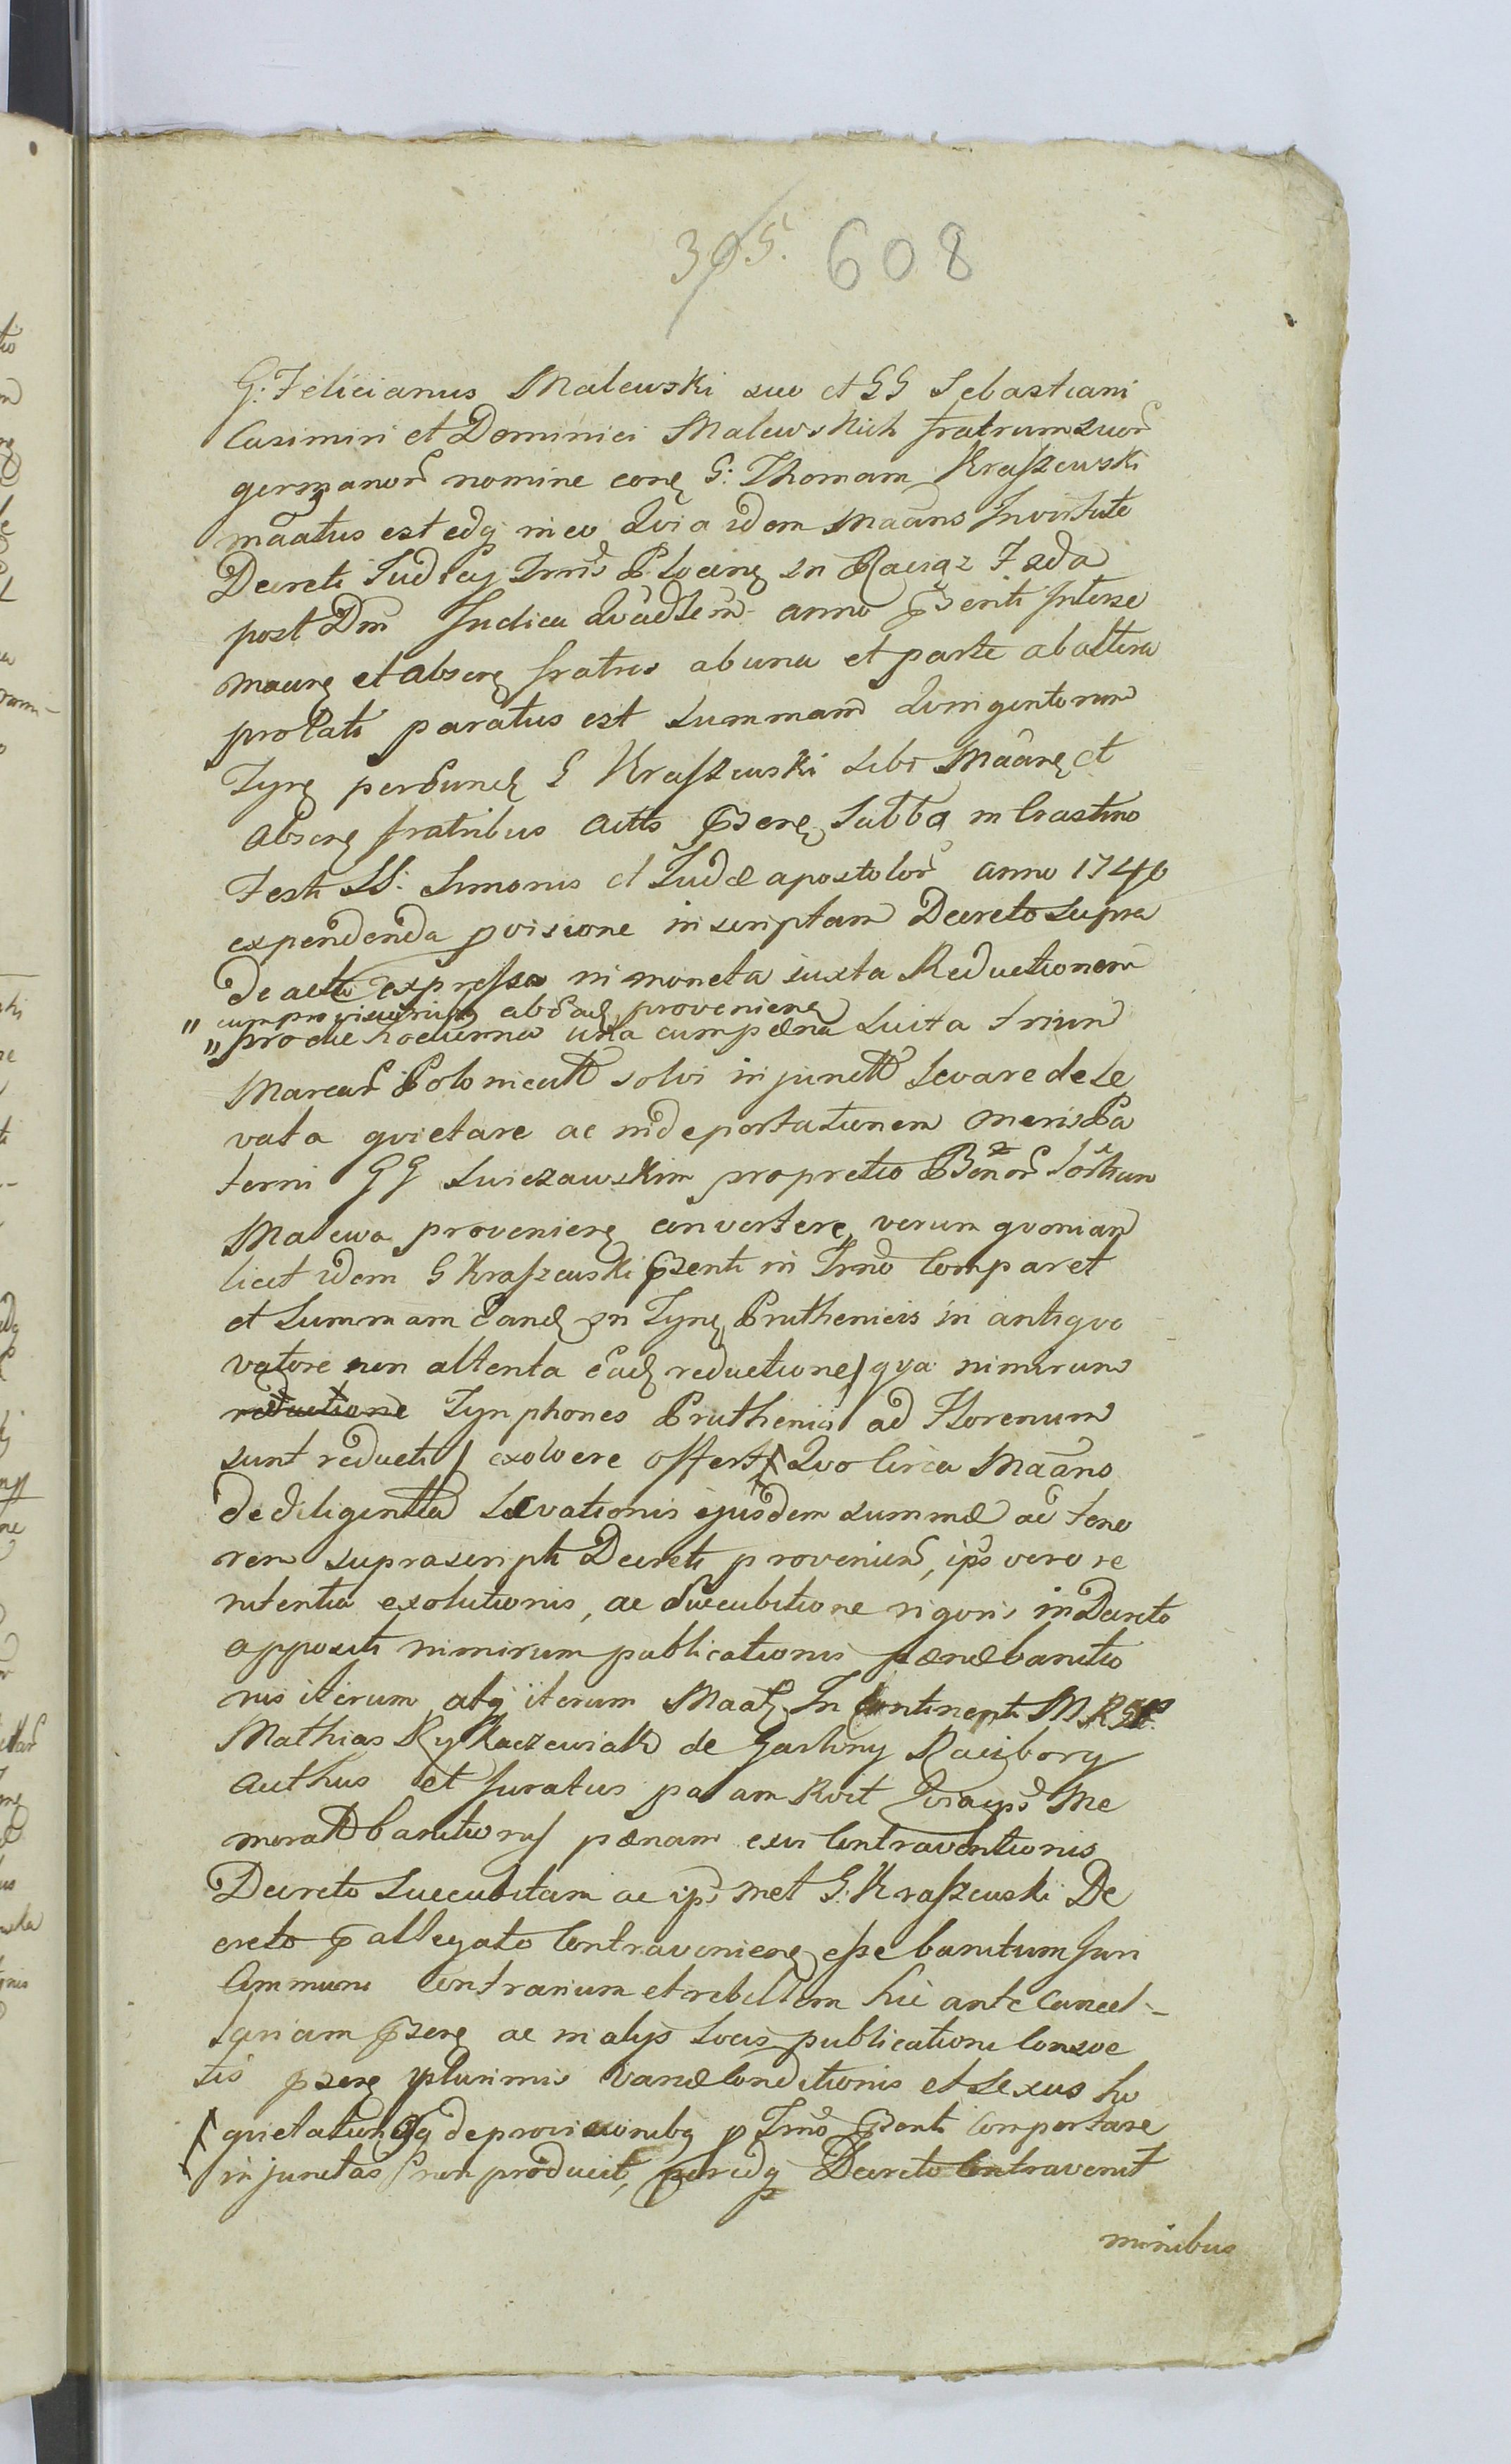 305. 608
G: Felicianus Malewski suo et GG Sebastiani
Casimiri et Dominici Malewskich fratrum suor
germanor nomine conq G: Thomam Kraszewski
maatus est edq in eo Qvia idem Maans Invirtute
Decreti Judicy Trris Plocinq in Raciąz F 2da
post Dm Judica Qvadlem anno pñenti Interse
Maanq et absenq fratres ab una et parte ab altera
prolati paratus est summam Qvingentorum
Tynq per eund G Kraszewski sibi Maanq et
absenq fratribus actis pñsenq Sabba in Crastino
Festi SS: Simonis et Judæ apostolor anno 1740
expendenda pvisione inscriptam Decreto supra
de actu expressa in moneta iuxta Reductionem
" cum provisionibq ab ead provenienq
" pro die hodierna una cum pæna luita trium
Marcar Polonicall solvi injunctt Levare dele
vata qvietare ac in deportationem oneris Pa
terni GG Swiezawskim propretio Bonor Sortium
Malewa provenienq convertere, verum qvoniam
licet idem G Kraszewski pñsenti in Trno Comparet
et Summam eand in Tynq Pruthenicis in antiqvo
valore non attenta ead reductione / qva nimirum
reductione Tynphones Pruthenici ad Florenum
sunt reducti / exolvere offert / Qvo Circa Maans
de diligentia Levationis ejusdem summæ ad teno
rem suprascripti Decreti provenien, ips vero re
nitentia exolutionis, ac succubitione rigoris in Decreto
appositi nimirum publicationis pænæ banitio
nis iterum atq iterum Maat In Continenti M RSP
Mathias Rykaczewiak de Garliny Racibory
authus et Juratus palam Rcit Qviaips Me
moratt banitionis pænam exvi Contraventionis
Decreto Succubitam ac ips met G: Kraszewski De
creto p allegato Contravenienq esse banitum Juri
Communi Contrarium et rebellem hic ante Cancel-
lariam pñsenq ac in alys Locis publicationi Consve
tis pñsenq plurimis variæ Conditionis et sexus ho
/ qvietationesq de provisionibq p Trno pñsenti Comportare
injunctas non producit, peridq Decreto Contravenit
minibus